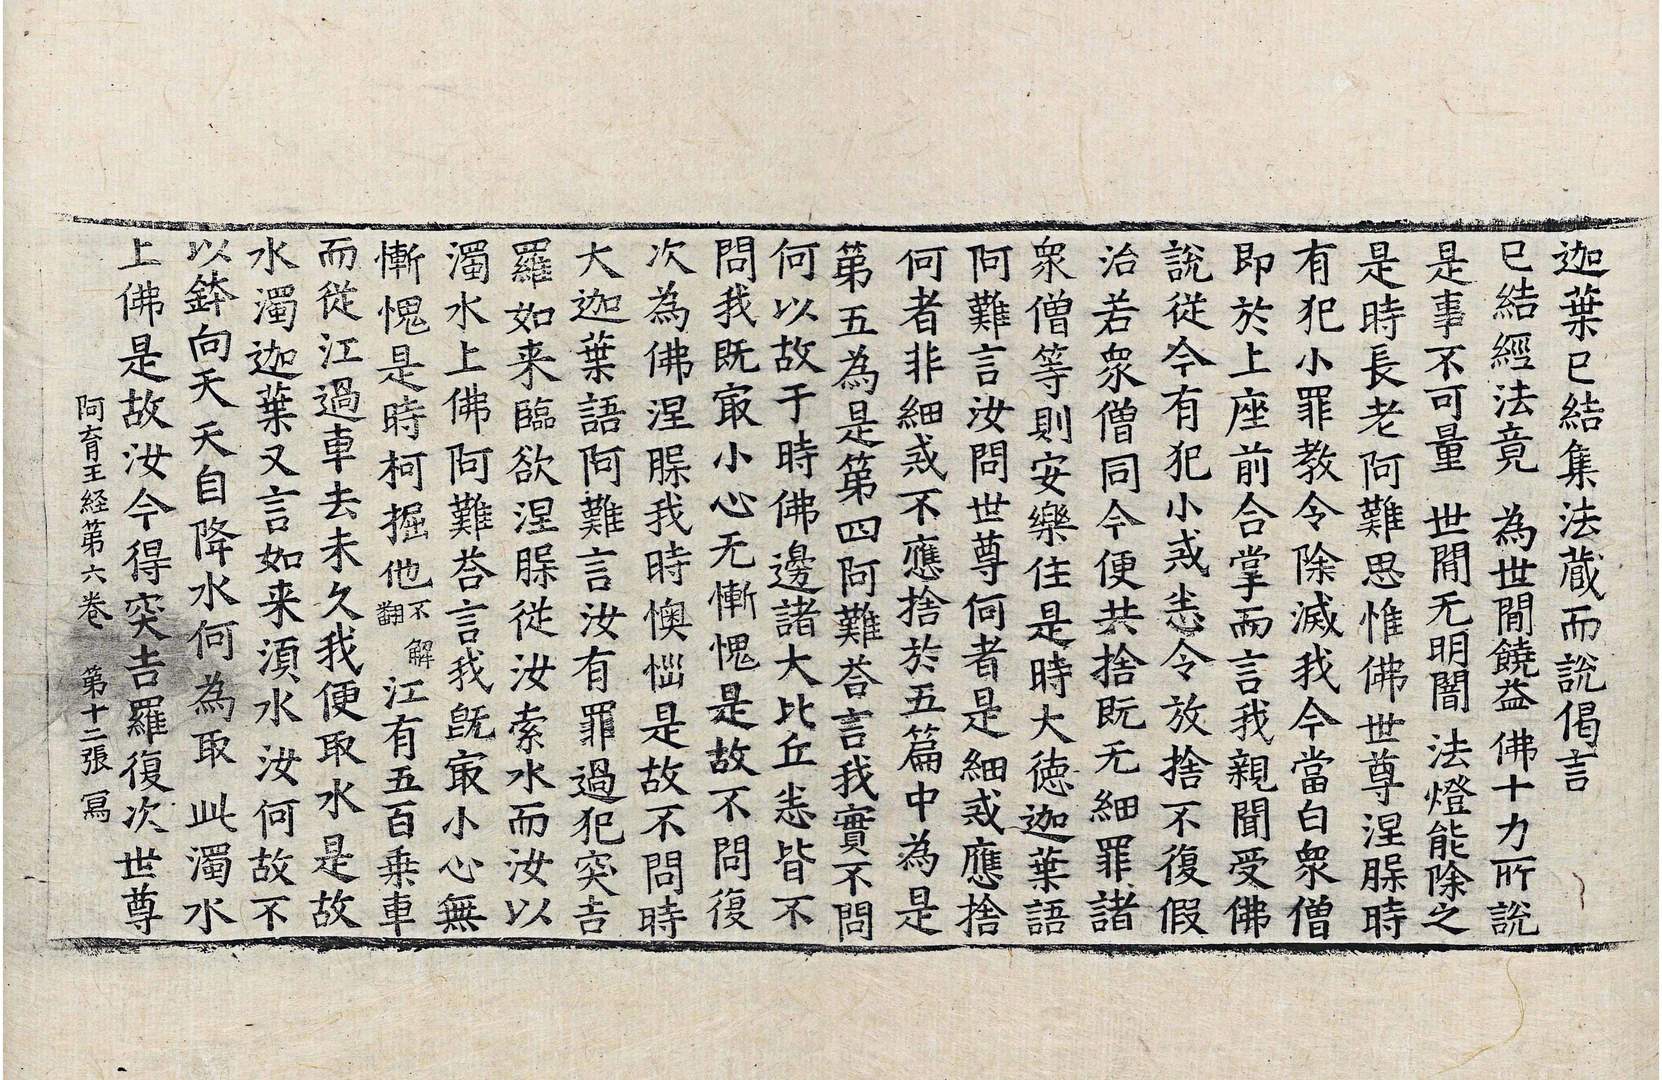 迦葉已結集法蔵而說偈言
已結經法竟　為世間饒益　佛十力所說
是事不可量　世間无明闇　法燈能除之
是時長老阿難思惟佛世尊涅槃時
有犯小罪教令除滅我今當白衆僧
即於上座前合掌而言我親聞受佛
說從今有犯小戒悉令放捨不復假
治若衆僧同今便共捨既无細罪諸
衆僧等則安樂住是時大德迦葉語
阿難言汝問世尊何者是細戒應捨
何者非細戒不應捨於五篇中為是
第五為是第四阿難荅言我實不問
何以故于時佛邊諸大比丘悉皆不
問我既㝡小心无慚愧是故不問復
次為佛涅槃我時懊惱是故不問時
大迦葉語阿難言汝有罪過犯突吉
羅如来臨欲涅槃從汝索水而汝以
濁水上佛阿難荅言我既㝡小心無
慚愧是時柯掘他不解翻江有五百乗車
而從江過車去未久我便取水是故
水濁迦葉又言如来須水汝何故不
以鉢向天天自降水何為取此濁水
上佛是故汝今得突吉羅復次世尊
阿育王経第六卷　第十二張　冩